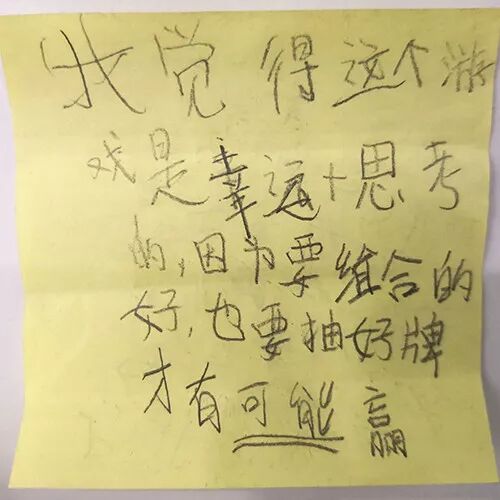 我觉得这个游
戏是幸运+思考
的,因为要组合的
好,也要抽好牌
才有可能赢